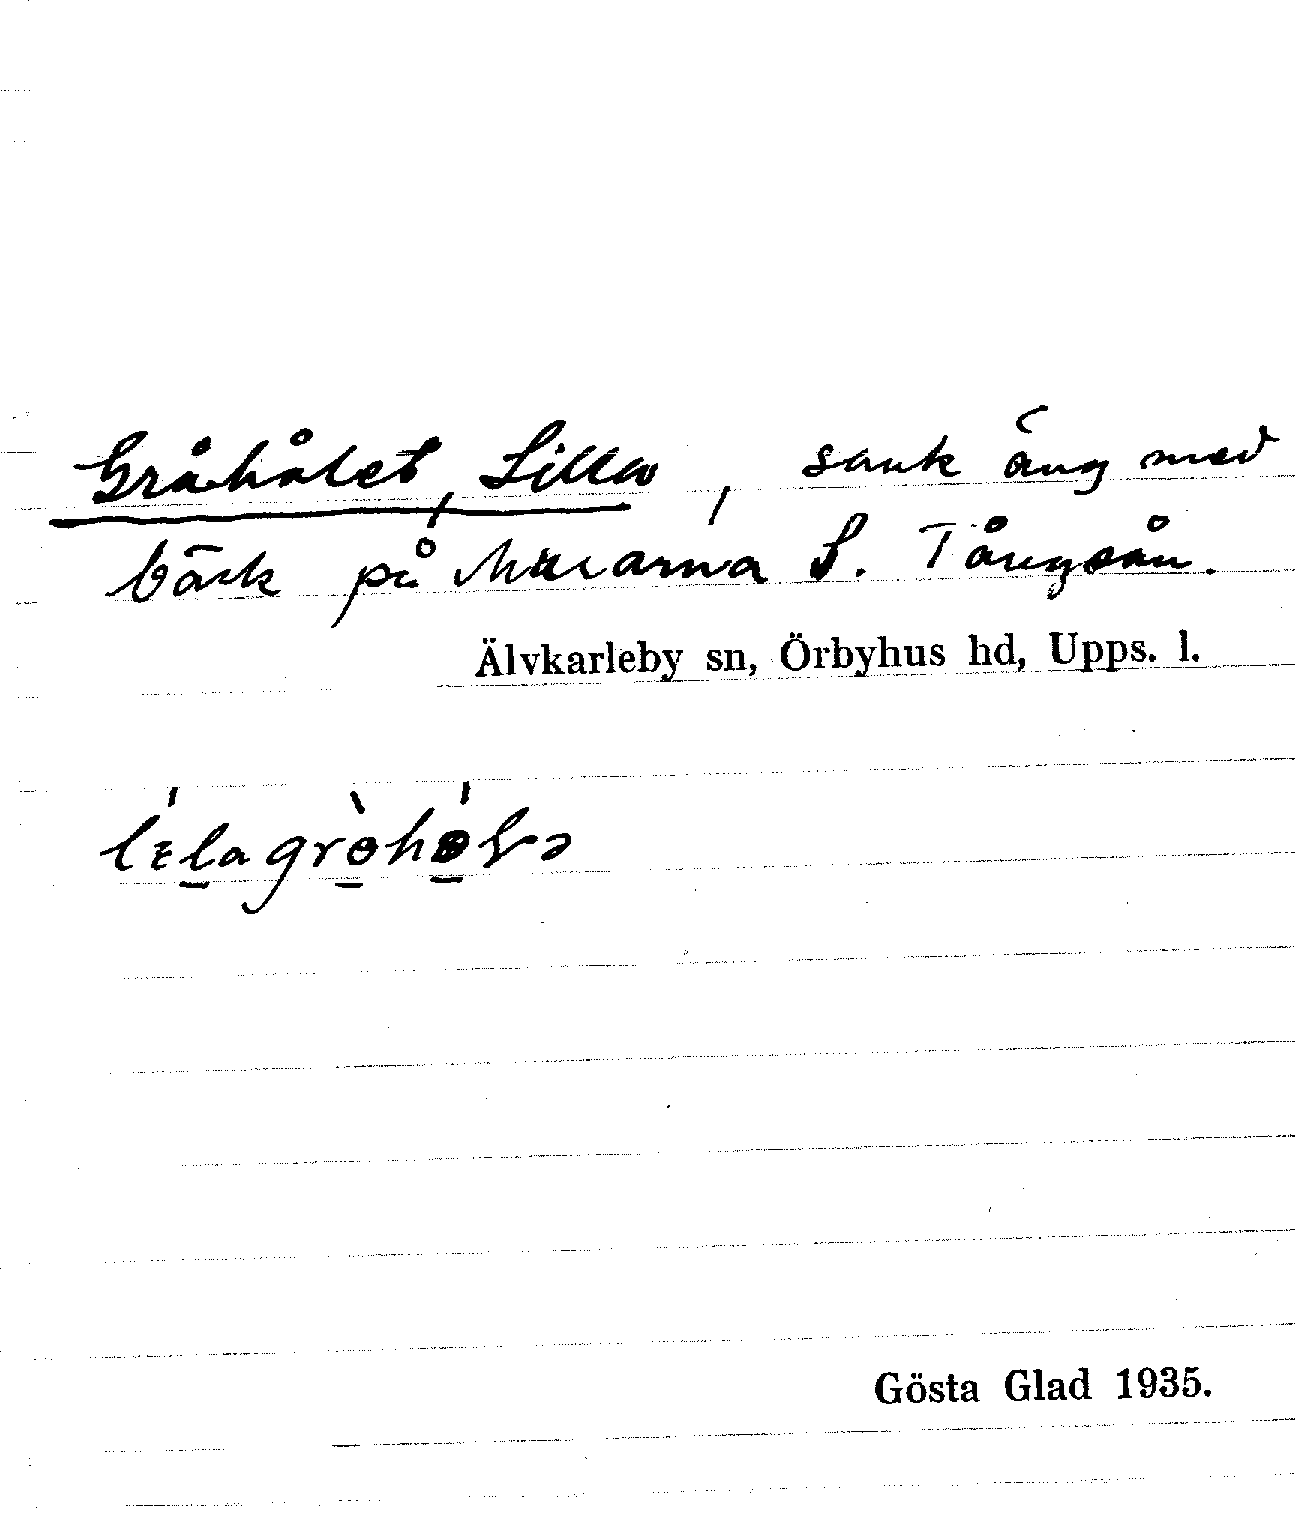 Gråhålet, Lilla, sank äng med
bäck på Mararna S. Tångsån.
Älvkarleby sn, Örbyhus hd, Upps. l.
Gösta Glad 1935.